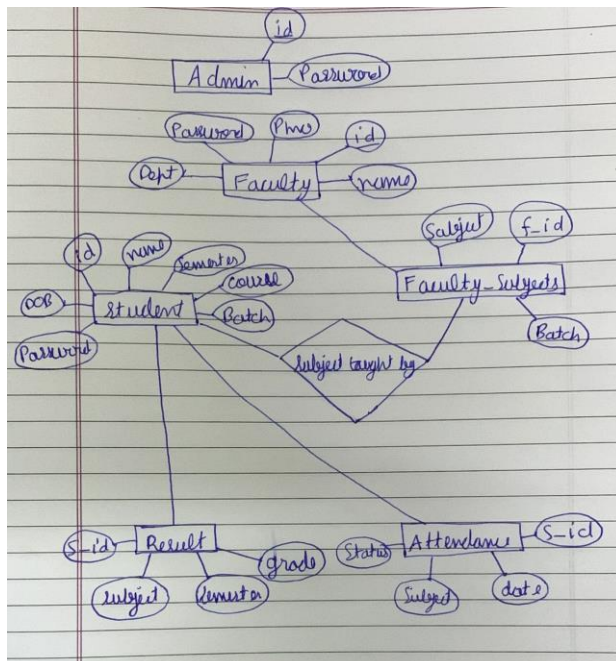 id
Admin
Password
Password
Pno
id
Dept
Faculty
name
Subject
f_id
Faculty_Subjects
Batch
id
name
Semester
course
DOB
Student
Batch
Password
Subject taught by
S_id
Result
grade
subject
Semester
Status
Attendance
S_id
Subject
date